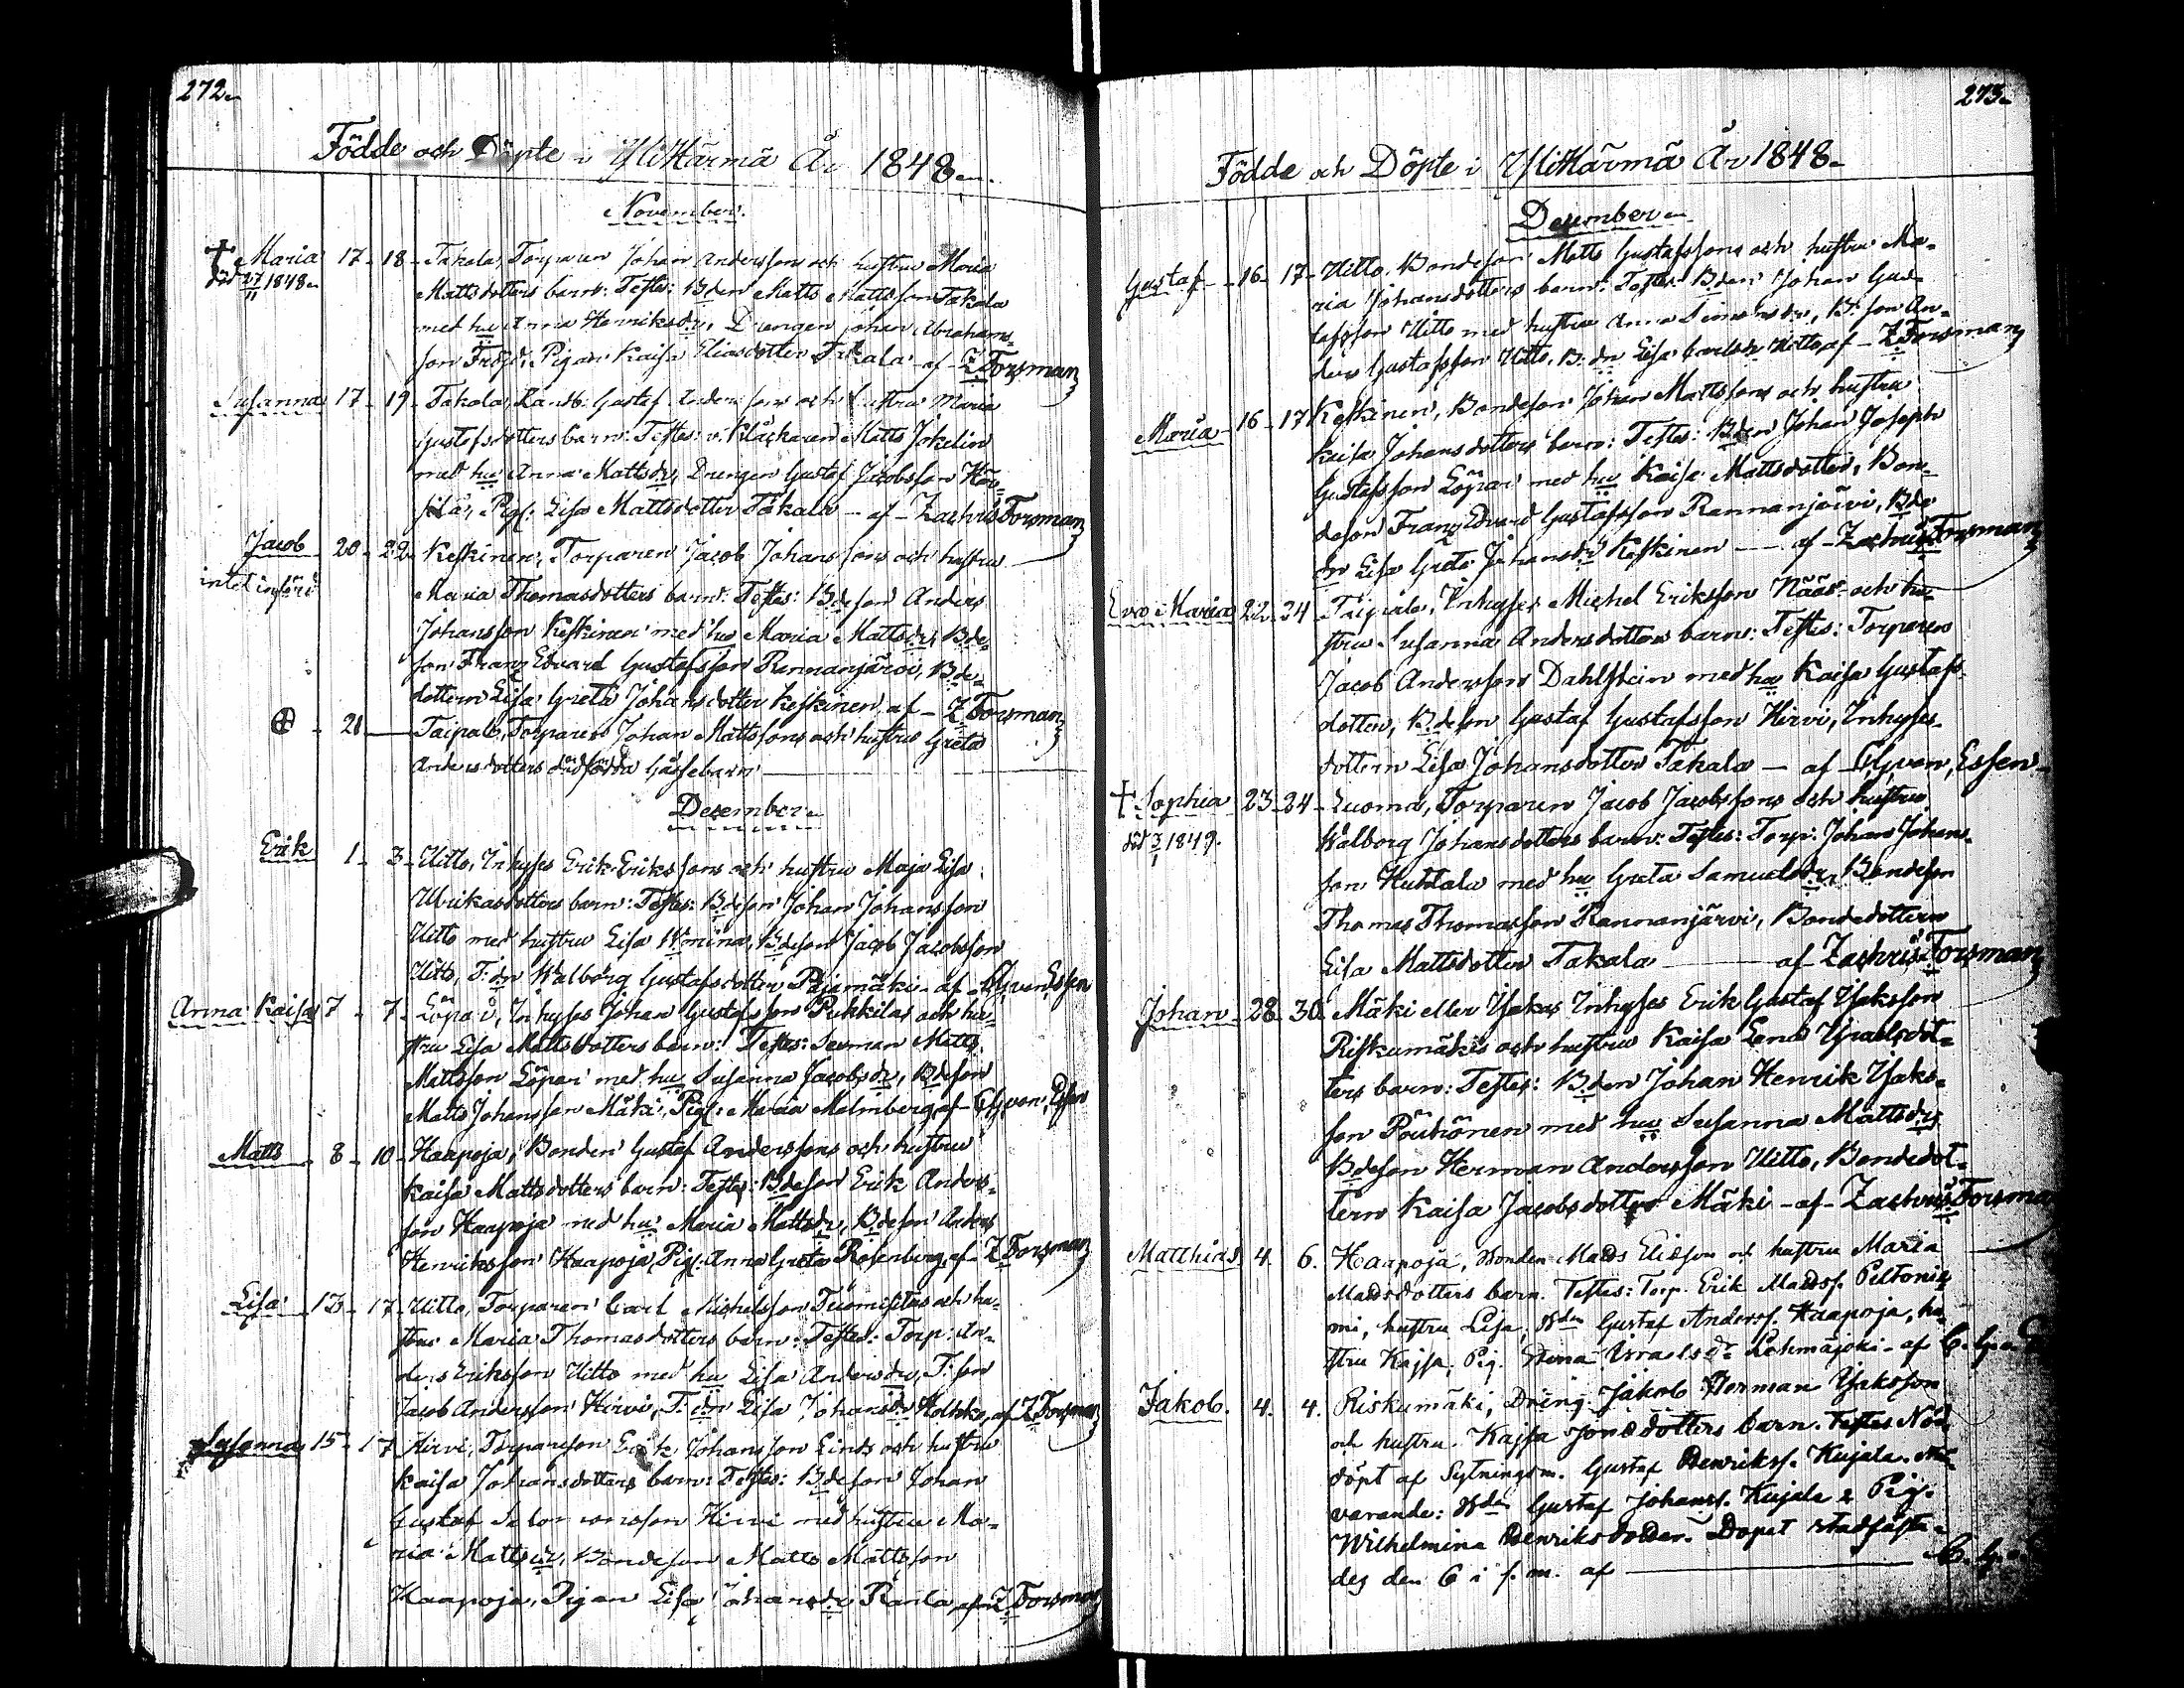 272.
Födde och Döpte i YliHärmä År 1848.
November.
† Maria 17 - 18 - Takala, Torparen Johan Anderssons och hustru Maria
död 27/11 1848. Mattsdotters barn: Testes: Bden Matts Mattsson Takala
med hu Anna Henriksdr, Drengen Johan Abrahams-
son Fröjd, Pigan Kaisa Eliasdotter Takala - af - Z Forsman
Susanna 17 - 19 - Takala, Landb. Gustaf Anderssons och hustru Maria
Gustafsdotters barn: Testes: v. Klåckaren Matts Jokelin
med hu Anna Mattsdr, Drengen Gustaf Jacobsson Här-
silä, Pig: Lisa Mattsdotter Takala - af - Zachris Forsman
Jacob - 20 - 22 - Keskinen, Torparen Jacob Johanssons och hustru
intet införd Maria Thomasdotters barn: Testes: Bdeson Anders
Johansson Keskinen med hu Maria Mattsdr, Bde-
son Franz Edvard Gustafsson Rannanjärvi, Bde-
dottern Lisa Greta Johansdotter Keskinen af - Z Forsman
- 21 - Taipale, Torparen Johan Mattssons och hustru Greta
Andersdotters dödfödda Gåssebarn
December
Erik 1 - 3 - Uitto, Inhyses Erik Erikssons och hustru Maja Lisa
Ulrikasdotters barn: Testes: Bdeson Johan Johansson
Uitto med hustru Lisa Wmina, Bdeson Jacob Jacobsson
Uitto, T:dr Walborg Gustafsdotter Pajamäki - af - CG von Essen
Anna Kaisa 7 - 7 - Löpari, Inhyses Johan Gustafsson Pukkilas och hu-
stru Lisa Mattsdotters barn: Testes: Sexman Matts
Mattsson Löpari med hu Susanna Jacobsdr, Bdeson
Matts Johansson Mäki, Pig: Maria Malmberg, af - CG von Essen
Matts - 8 - 10 - Haapoja, Bonden Gustaf Anderssons och hustru
Kaisa Mattsdotters barn: Testes: Bdeson Erik Anders-
son Haapoja med hu Maria Mattsdr, Bdeson Anders
Henriksson Haapoja, Pig: Anna Greta Rosenberg, af - Z Forsman
Lisa - 13 - 17 - Uitto, Torparen Carl Michelsson Tuomistos och hu-
stru Maria Thomasdotters barn: Testes: Torp: An-
ders Eriksson Uitto med hu Lisa Andersdr, T:son
Jacob Andersson Hirvi, T:dr Lisa Johansdr Holkko, af Z Forsman
Susanna 15 - 17 Hirvi, Torpareson Erik Johansson Linds och hustru
Kaisa Johansdotters barn: Testes: Bdeson Johan
Gustaf Salomonsson Hirvi med hustru Ma-
ria Mattsdr, Bondeson Matts Mattsson
Haapoja, Pigan Lisa Johansdr Ranta, af Z Forsman
273.
Födde och Döpte i YliHärmä År 1848.
December.
Gustaf - 16 - 17 - Uitto, Bondeson Matts Gustafssons och hustru Ma-
ria Johansdotters barn: Testes: Bden Johan Gus-
tafsson Uitto med hustru Anna Simonsdr, B:son An-
ders Gustafsson Uitto, B:dr Lisa Carlsdr Uitto, af - Z Forsman
Maria - 16 - 17 Keskinen, Bondeson Johan Mattssons och hustru
Kaisa Johansdotters barn: Testes: Bden Johan Joseph
Gustafsson Löpari med hu Kaisa Mattsdotter, Bon-
deson Franz Edvard Gustafsson Rannanjärvi, Bde
dr Lisa Greta Johansdr Keskinen - af - Zachris Forsman
Eva Maria 22 - 24 - Taipale, Inhyses Michel Eriksson Nääs och hu-
stru Susanna Andersdotters barn: Testes: Torparen
Jacob Anderssons Dahlstein med hu Kaisa Gustafs-
dotter, Bdeson Gustaf Gustafsson Hirvi, Inhyses-
dottern Lisa Johansdotter Takala - af - CG von Essen
† Sophia 23 - 24 - Luoma, Torparen Jacob Jacobssons och hustru
död 3/1 1849. Walborg Johansdotters barn: Testes: Torp: Johan Johans-
son Huhtala med hu Greta Samuelsdr, Bondeson
Thomas Thomasson Rannanjärvi, Bondedottern
Lisa Mattsdotter Takala - af Zachris Forsman
Johan - 28 - 30 Mäki eller Ysakas Inhyses Erik Gustaf Ysaksson
Riskumäkis och hustru Kaisa Lena Ysraelsdot-
ters barn: Testes: Bden Johan Henrik Ysaks-
son Pöutiönen med hu Susanna Mattsdr,
Bdeson Herman Andersson Uitto, Bondedot-
tern Kaisa Jacobsdotter Mäki - af - Zachris Forsma
Matthias 4. 6. Haapoja, Bonden Matts Eliesson och hustru Maria
Mattsdotters barn. Testes: Torp. Erik Mattss. Peltonie-
mi, hustru Lisa, Bden Gustaf Anderss. Haapoja, hu-
stru Kajsa, Pig. Stina Israelsdr Lohmajoki - af C. G.
Jakob. 4. 4. Riskumäki, Dräng Jakob Herman Ysaksson
och hustru Kajsa Jonsdotters barn. Testes Nöd
döpt af Sytningsm. Gustaf Henrikss. Kujala. När-
varande: Bden Gustaf Johanss. Kujala & Pig.
Wilhelmina Henriksdotter. Dopet stadfäste-
des den 6 i s. m. af - C. G.